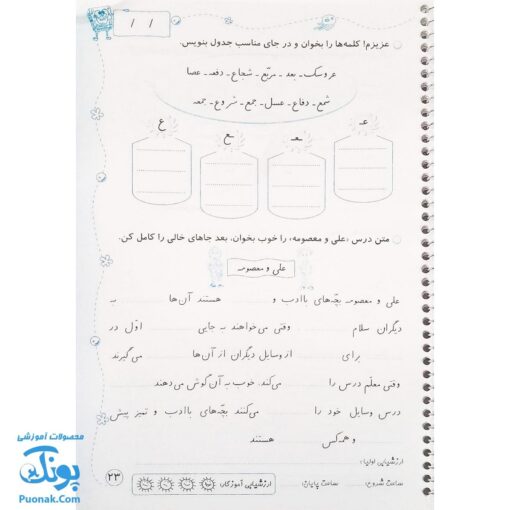 / /
عزیزم! کلمه‌ها را بخوان و در جای مناسب جدول بنویس.
عروسک - بعد - مربّع - شعاع - دفعه - عصا
شمع - دفاع - عسل - جمع - شروع - جمعه
عـ ـعـ ـع ع
متن درس «علی و معصومه» را خوب بخوان. بعد جاهای خالی را کامل کن.
علی و معصومه
علی و معصومه بچّه‌های باادب و هستند آن‌ها به
دیگران سلام وقتی می‌خواهند به جایی اوّل در
برای از وسایل دیگران از آن‌ها می‌گیرند
وقتی معلّم درس را می‌کند خوب به آن گوش می‌دهند
درس وسایل خود را می‌کنند بچّه‌های باادب و تمیز پیش
و همه‌کس هستند
ارزشیابی اولیا:
ساعت شروع: ساعت پایان: ارزشیابی آموزگار:
۲۳
محصولات آموزشی
پونک
Puonak.Com